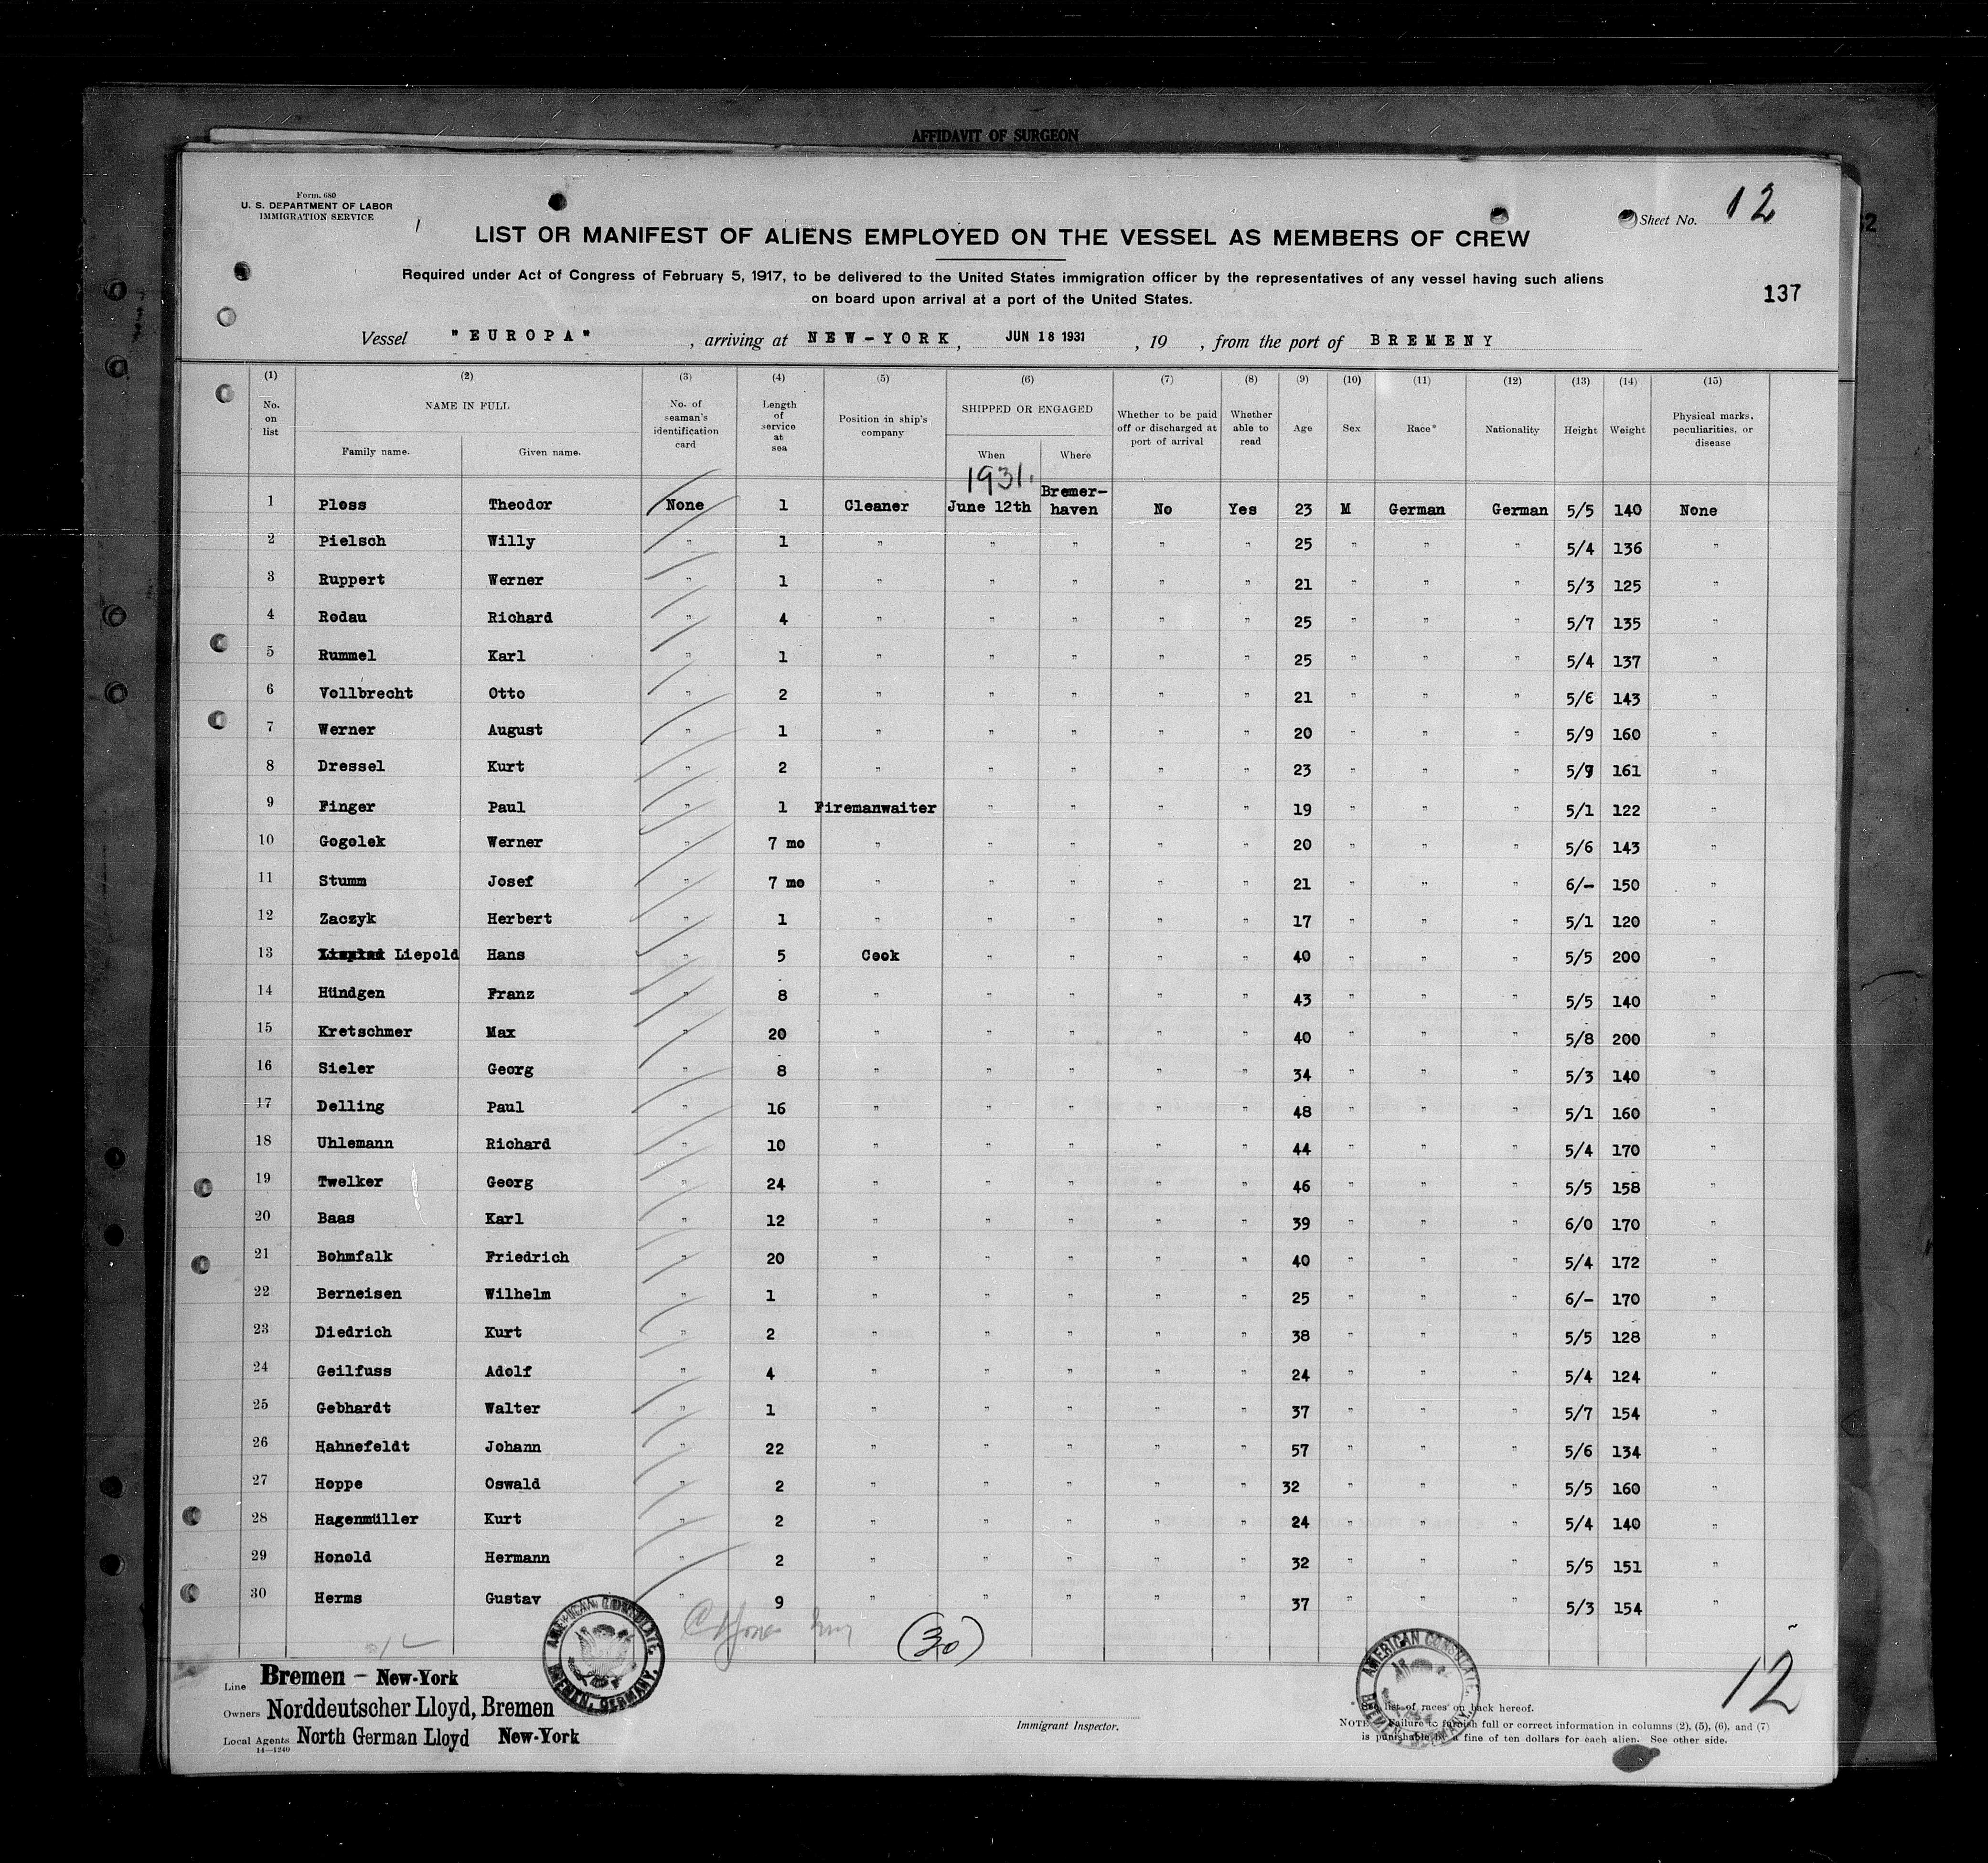 AFFIDAVIT OF SURGEON
Form. 680
U. S. DEPARTMENT OF LABOR
IMMIGRATION SERVICE
Sheet No. 12
LIST OR MANIFEST OF ALIENS EMPLOYED ON THE VESSEL AS MEMBERS OF CREW
Required under Act of Congress of February 5, 1917, to be delivered to the United States immigration officer by the representatives of any vessel having such aliens
on board upon arrival at a port of the United States.
137
Vessel "EUROPA" , arriving at NEW-YORK, JUN 18 1931 , 19 , from the port of BREMENY
(1) (2) (3) (4) (5) (6) (7) (8) (9) (10) (11) (12) (13) (14) (15)
No. on list NAME IN FULL Family name. Given name. No. of seaman's identification card Length of service at sea Position in ship's company SHIPPED OR ENGAGED When Where Whether to be paid off or discharged at port of arrival Whether able to read Age Sex Race* Nationality Height Weight Physical marks, peculiarities, or disease
1931.
1 Ploss Theodor None 1 Cleaner June 12th Bremer-haven No Yes 23 M German German 5/5 140 None
2 Pielsch Willy " 1 " " " " " 25 " " " 5/4 136 "
3 Ruppert Werner " 1 " " " " " 21 " " " 5/3 125 "
4 Rodau Richard " 4 " " " " " 25 " " " 5/7 135 "
5 Rummel Karl " 1 " " " " " 25 " " " 5/4 137 "
6 Vollbrecht Otto " 2 " " " " " 21 " " " 5/6 143 "
7 Werner August " 1 " " " " " 20 " " " 5/9 160 "
8 Dressel Kurt " 2 " " " " " 23 " " " 5/9 161 "
9 Finger Paul " 1 Firemanwaiter " " " " 19 " " " 5/1 122 "
10 Gogolek Werner " 7 mo " " " " " 20 " " " 5/6 143 "
11 Stumm Josef " 7 mo " " " " " 21 " " " 6/- 150 "
12 Zaczyk Herbert " 1 " " " " " 17 " " " 5/1 120 "
13 Liepold Hans " 5 Cook " " " " 40 " " " 5/5 200 "
14 Hündgen Franz " 8 " " " " " 43 " " " 5/5 140 "
15 Kretschmer Max " 20 " " " " " 40 " " " 5/8 200 "
16 Sieler Georg " 8 " " " " " 34 " " " 5/3 140 "
17 Delling Paul " 16 " " " " " 48 " " " 5/1 160 "
18 Uhlemann Richard " 10 " " " " " 44 " " " 5/4 170 "
19 Twelker Georg " 24 " " " " " 46 " " " 5/5 158 "
20 Baas Karl " 12 " " " " " 39 " " " 6/0 170 "
21 Bohmfalk Friedrich " 20 " " " " " 40 " " " 5/4 172 "
22 Berneisen Wilhelm " 1 " " " " " 25 " " " 6/- 170 "
23 Diedrich Kurt " 2 " " " " " 38 " " " 5/5 128 "
24 Geilfuss Adolf " 4 " " " " " 24 " " " 5/4 124 "
25 Gebhardt Walter " 1 " " " " " 37 " " " 5/7 154 "
26 Hahnefeldt Johann " 22 " " " " " 57 " " " 5/6 134 "
27 Hoppe Oswald " 2 " " " " " 32 " " " 5/5 160 "
28 Hagenmüller Kurt " 2 " " " " " 24 " " " 5/4 140 "
29 Honold Hermann " 2 " " " " " 32 " " " 5/5 151 "
30 Herms Gustav " 9 " " " " " 37 " " " 5/3 154 "
(30)
AMERICAN CONSULATE, BREMEN, GERMANY.
AMERICAN CONSULATE
12
Line Bremen – New-York
Owners Norddeutscher Lloyd, Bremen
Local Agents North German Lloyd New-York
14—1240
Immigrant Inspector.
*See list of races on back hereof.
NOTE.—Failure to furnish full or correct information in columns (2), (5), (6), and (7)
is punishable by a fine of ten dollars for each alien. See other side.